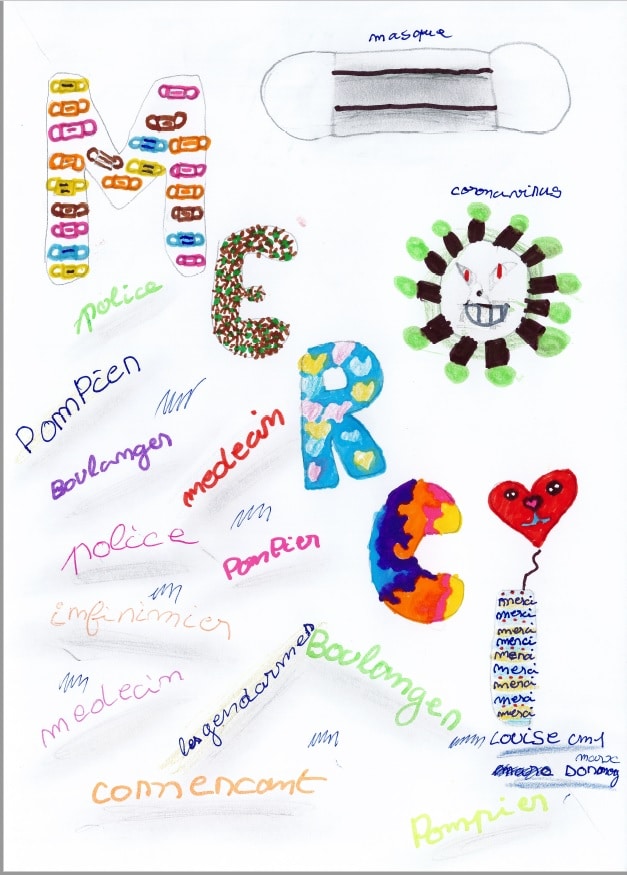 masque
coronavirus
MERCI
police
Pompien
Boulanger
medecin
police
Pompier
infinimier
medecin
les gendarmes
Boulanger
comencant
Pompier
merci
merci
merci
merci
merci
merci
merci
merci
merci
LOUISE cm1